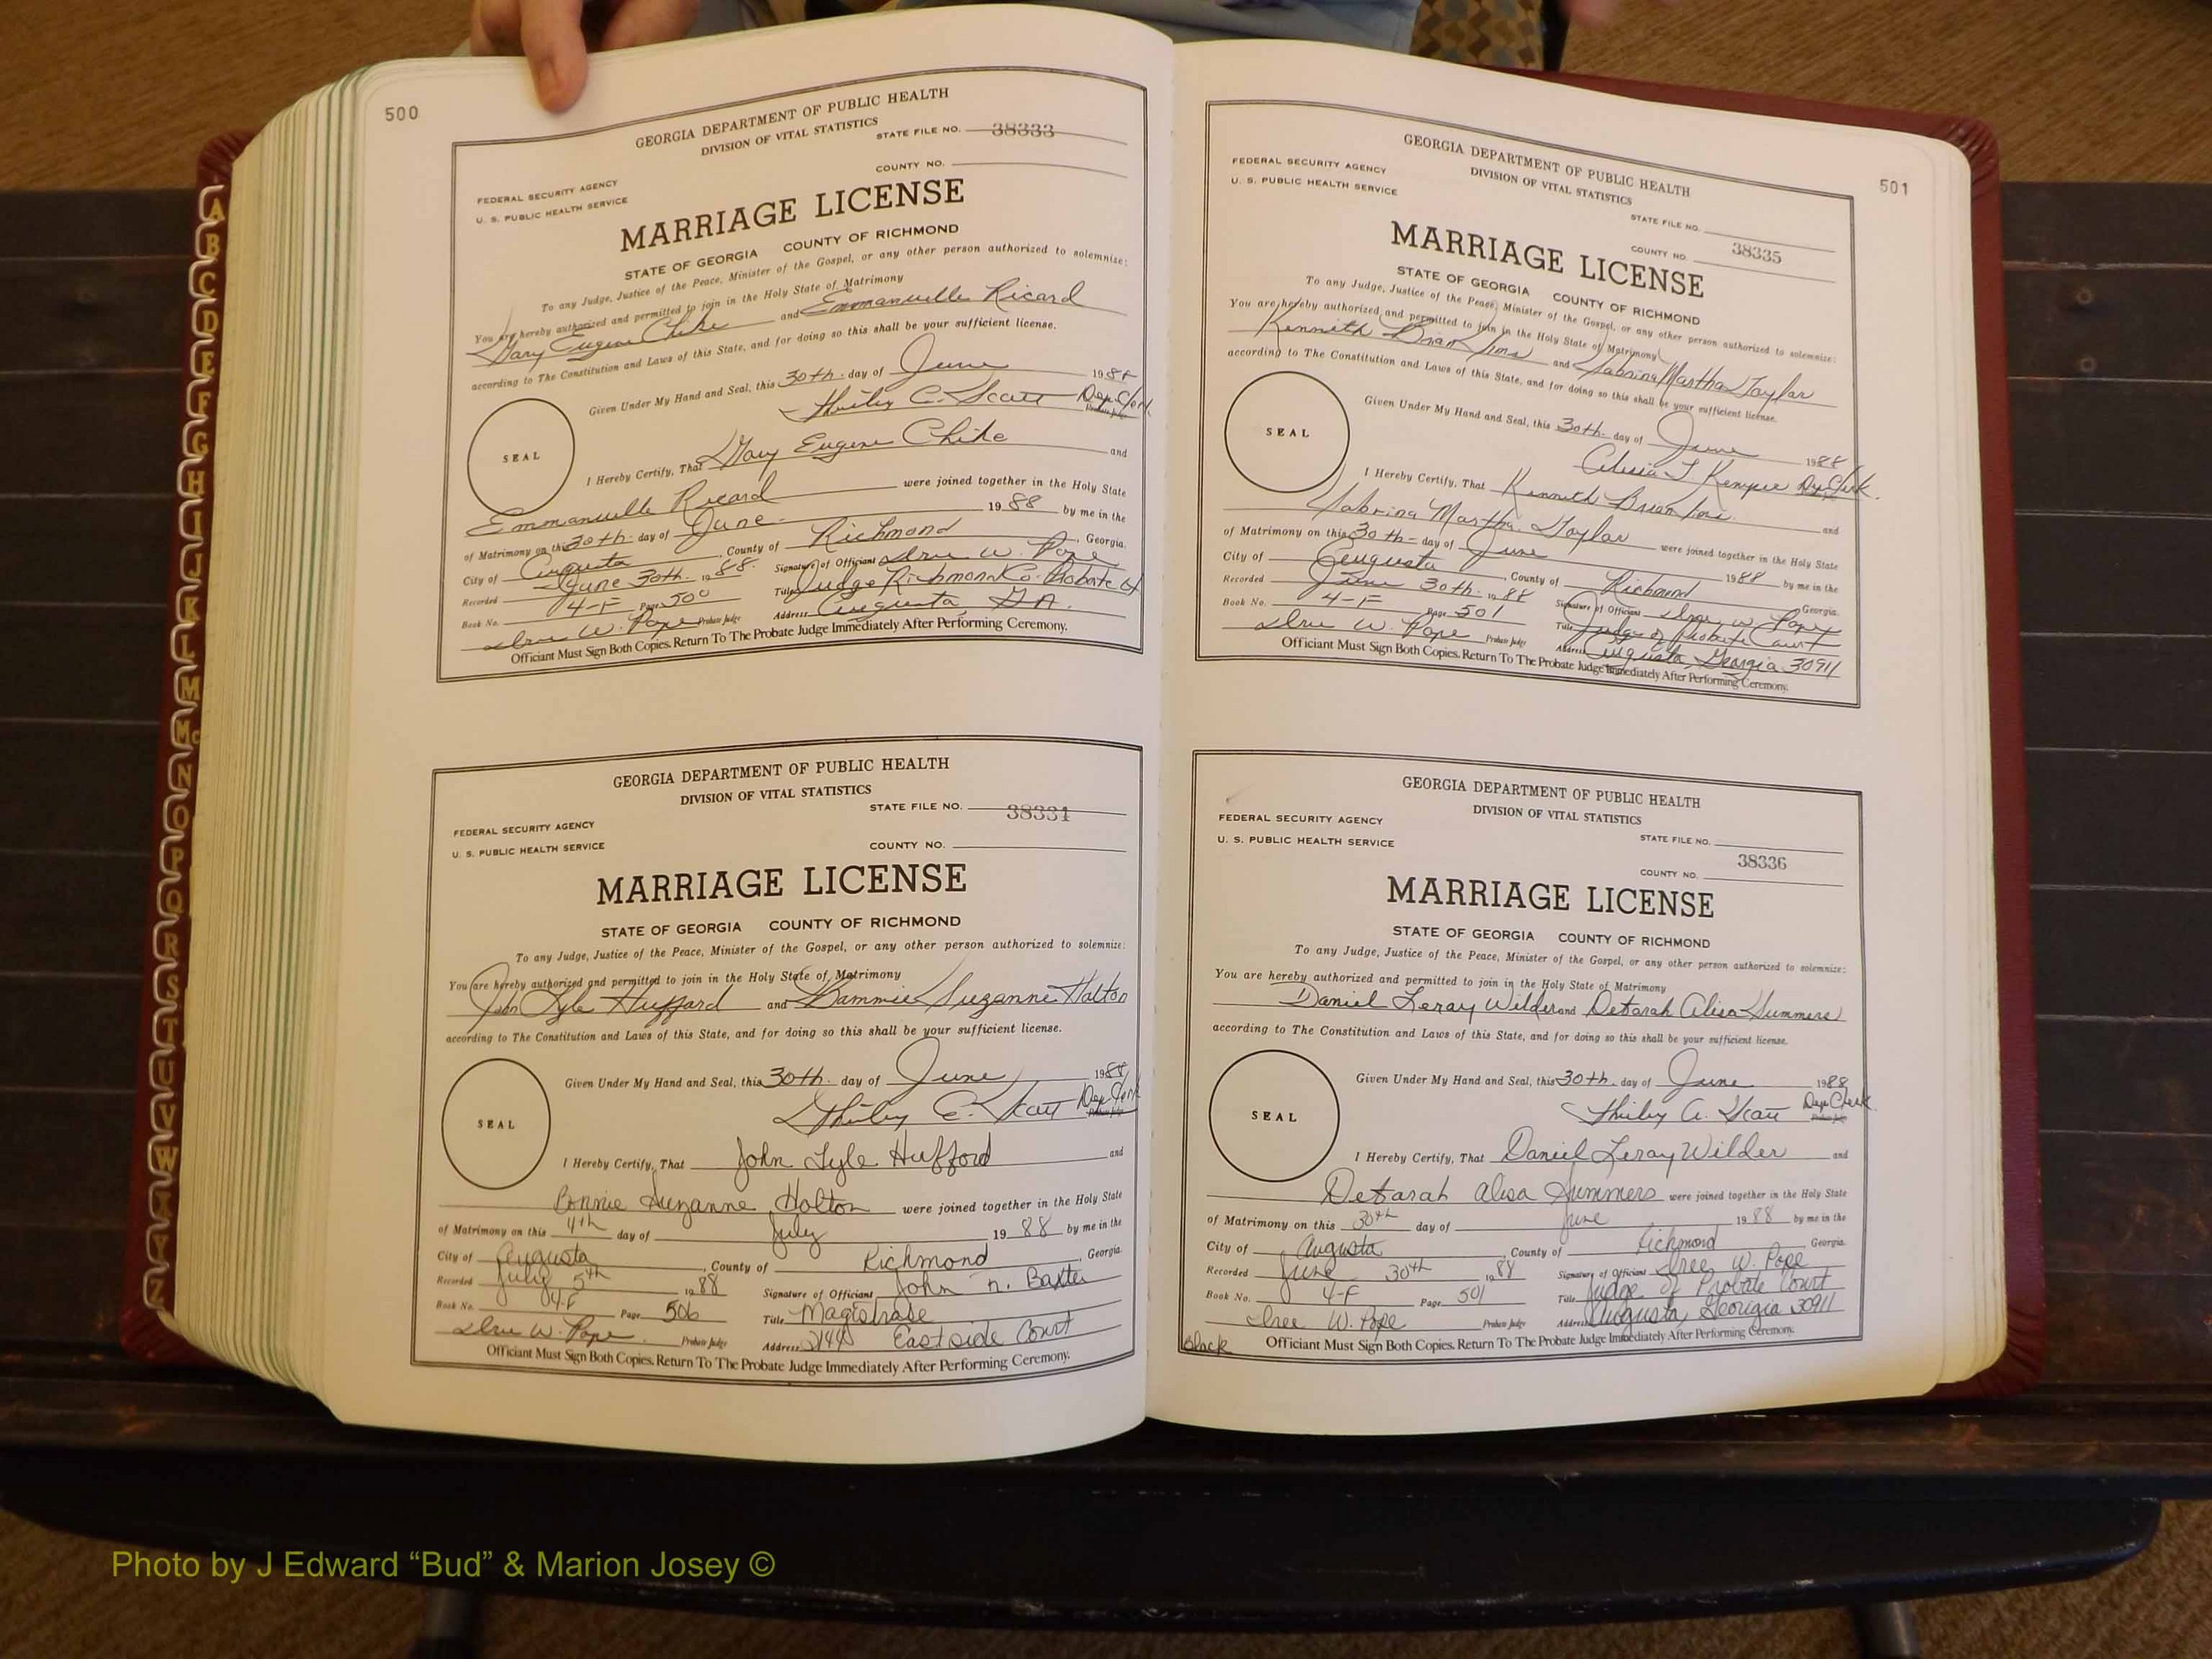 500
GEORGIA DEPARTMENT OF PUBLIC HEALTH
DIVISION OF VITAL STATISTICS
STATE FILE NO. 38333
COUNTY NO.
FEDERAL SECURITY AGENCY
U. S. PUBLIC HEALTH SERVICE
MARRIAGE LICENSE
STATE OF GEORGIA COUNTY OF RICHMOND
To any Judge, Justice of the Peace, Minister of the Gospel, or any other person authorized to solemnize:
You are hereby authorized and permitted to join in the Holy State of Matrimony
Gary Eugene and Emmanuelle Ricard
according to The Constitution and Laws of this State, and for doing so this shall be your sufficient license.
Given Under My Hand and Seal, this 30th day of June 1988
Shirley Scott Dep. Clerk
SEAL
I Hereby Certify, That Gary Eugene and
Emmanuelle Ricard were joined together in the Holy State
of Matrimony on this 30th day of June 1988 by me in the
City of Augusta, County of Richmond, Georgia.
Recorded June 30th 1988. Signature of Officiant W. Pope
Book No. 4-F Page 500 Title Judge Richmond Co. Probate Ct
W. Pope Probate Judge Address Augusta, GA.
Officiant Must Sign Both Copies. Return To The Probate Judge Immediately After Performing Ceremony.
GEORGIA DEPARTMENT OF PUBLIC HEALTH
DIVISION OF VITAL STATISTICS
STATE FILE NO. 38334
FEDERAL SECURITY AGENCY
U. S. PUBLIC HEALTH SERVICE
COUNTY NO.
MARRIAGE LICENSE
STATE OF GEORGIA COUNTY OF RICHMOND
To any Judge, Justice of the Peace, Minister of the Gospel, or any other person authorized to solemnize:
You are hereby authorized and permitted to join in the Holy State of Matrimony
John Lyle Hufford and Suzanne Holton
according to The Constitution and Laws of this State, and for doing so this shall be your sufficient license.
Given Under My Hand and Seal, this 30th day of June 1988
Shirley Scott Dep. Clerk
SEAL
I Hereby Certify, That John Lyle Hufford and
Bonnie Suzanne Holton were joined together in the Holy State
of Matrimony on this 4th day of July 1988 by me in the
City of Augusta, County of Richmond, Georgia.
Recorded July 5th 1988 Signature of Officiant John N. Baxter
Book No. 4-F Page 506 Title Magistrate
W. Pope Probate Judge Address Eastside Court
Officiant Must Sign Both Copies. Return To The Probate Judge Immediately After Performing Ceremony.
501
GEORGIA DEPARTMENT OF PUBLIC HEALTH
DIVISION OF VITAL STATISTICS
FEDERAL SECURITY AGENCY
U. S. PUBLIC HEALTH SERVICE
STATE FILE NO.
COUNTY NO. 38335
MARRIAGE LICENSE
STATE OF GEORGIA COUNTY OF RICHMOND
To any Judge, Justice of the Peace, Minister of the Gospel, or any other person authorized to solemnize:
You are hereby authorized and permitted to join in the Holy State of Matrimony
Kenneth Brian and Sabrina Martha Taylor
according to The Constitution and Laws of this State, and for doing so this shall be your sufficient license.
Given Under My Hand and Seal, this 30th day of June 1988
Dep. Clerk.
SEAL
I Hereby Certify, That Kenneth Brian and
Sabrina Martha Taylor were joined together in the Holy State
of Matrimony on this 30th day of June 1988 by me in the
City of Augusta, County of Richmond Georgia.
Recorded June 30th 1988 Signature of Officiant W. Pope
Book No. 4-F Page 501 Title Judge of Probate Court
W. Pope Probate Judge Address Augusta, Georgia 30911
Officiant Must Sign Both Copies. Return To The Probate Judge Immediately After Performing Ceremony.
GEORGIA DEPARTMENT OF PUBLIC HEALTH
DIVISION OF VITAL STATISTICS
FEDERAL SECURITY AGENCY
U. S. PUBLIC HEALTH SERVICE
STATE FILE NO.
COUNTY NO. 38336
MARRIAGE LICENSE
STATE OF GEORGIA COUNTY OF RICHMOND
To any Judge, Justice of the Peace, Minister of the Gospel, or any other person authorized to solemnize:
You are hereby authorized and permitted to join in the Holy State of Matrimony
Daniel Leray Wilder and Deborah Alisa Summers
according to The Constitution and Laws of this State, and for doing so this shall be your sufficient license.
Given Under My Hand and Seal, this 30th day of June 1988
Shirley A. Scott Dep. Clerk
SEAL
I Hereby Certify, That Daniel Leray Wilder and
Deborah Alisa Summers were joined together in the Holy State
of Matrimony on this 30th day of June 1988 by me in the
City of Augusta, County of Richmond Georgia.
Recorded June 30th 1988 Signature of Officiant W. Pope
Book No. 4-F Page 501 Title Judge of Probate Court
W. Pope Probate Judge Address Augusta, Georgia 30911
Black Officiant Must Sign Both Copies. Return To The Probate Judge Immediately After Performing Ceremony.
A
B
C
D
E
F
G
H
I
J
K
L
M
Mc
N
O
P
Q
R
S
T
U
V
W
X
Y
Z
Photo by J Edward “Bud” & Marion Josey ©